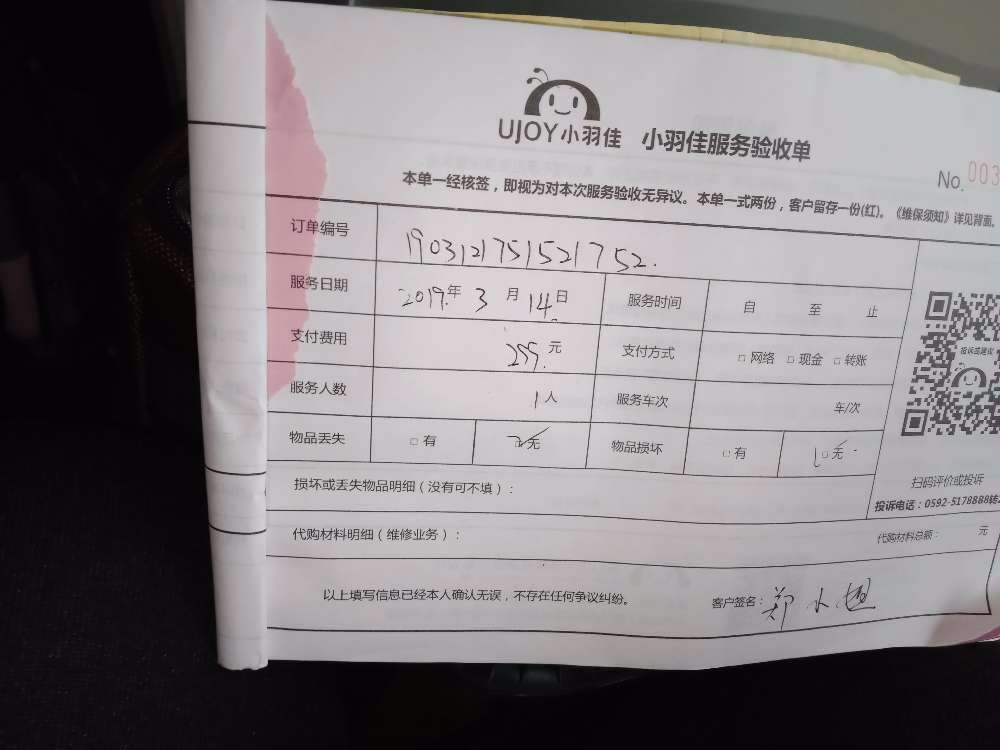 UJOY小羽佳 小羽佳服务验收单
No. 003
本单一经核签，即视为对本次服务验收无异议。本单一式两份，客户留存一份(红)。《维保须知》详见背面。
订单编号 1903121751521752.
服务日期 2019.年 3 月 14 日 服务时间 自 至 止
支付费用 299. 元 支付方式 □ 网络 □ 现金 □ 转账
服务人数 1 人 服务车次 车/次
物品丢失 □ 有 □ 无 物品损坏 □ 有 □ 无
扫码评价或投诉
投诉电话：0592-5178888转
损坏或丢失物品明细（没有可不填）：
代购材料明细（维修业务）： 代购材料总额： 元
以上填写信息已经本人确认无误，不存在任何争议纠纷。 客户签名：郑小超